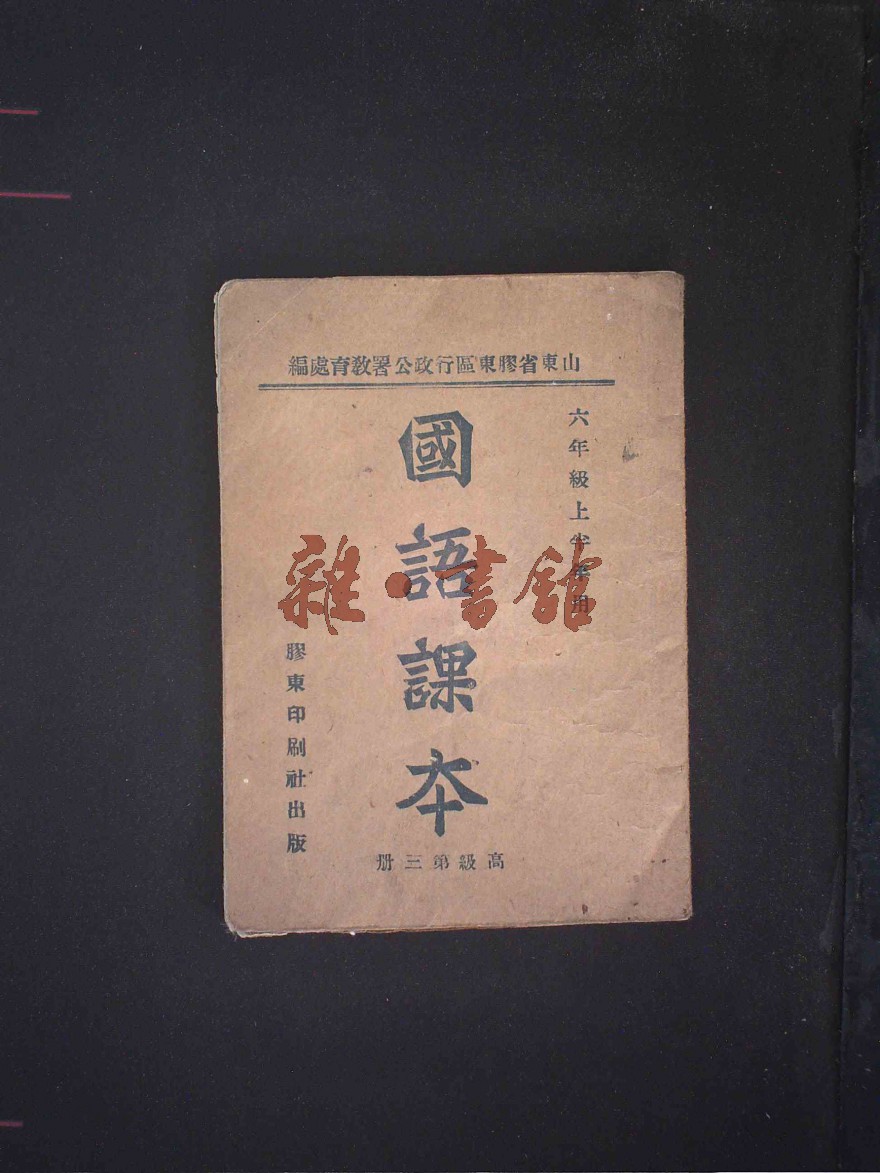 山東省膠東區行政公署教育處編
六年級上半年用
國語課本
高級第三册
膠東印刷社出版
雜·書館